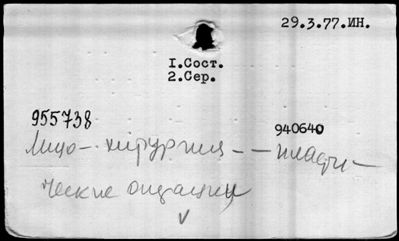 29.3.77.ИН.
I.Сост.
2.Сер.
955738
940640
Лицо – хирургия – – пласти –
ческие операции